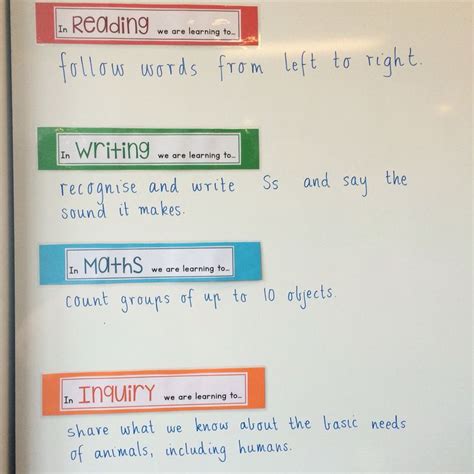 In Reading we are learning to...
follow words from left to right.
In Writing we are learning to...
recognise and write Ss and say the
sound it makes.
In Maths we are learning to...
count groups of up to 10 objects.
In Inquiry we are learning to...
share what we know about the basic needs
of animals, including humans.